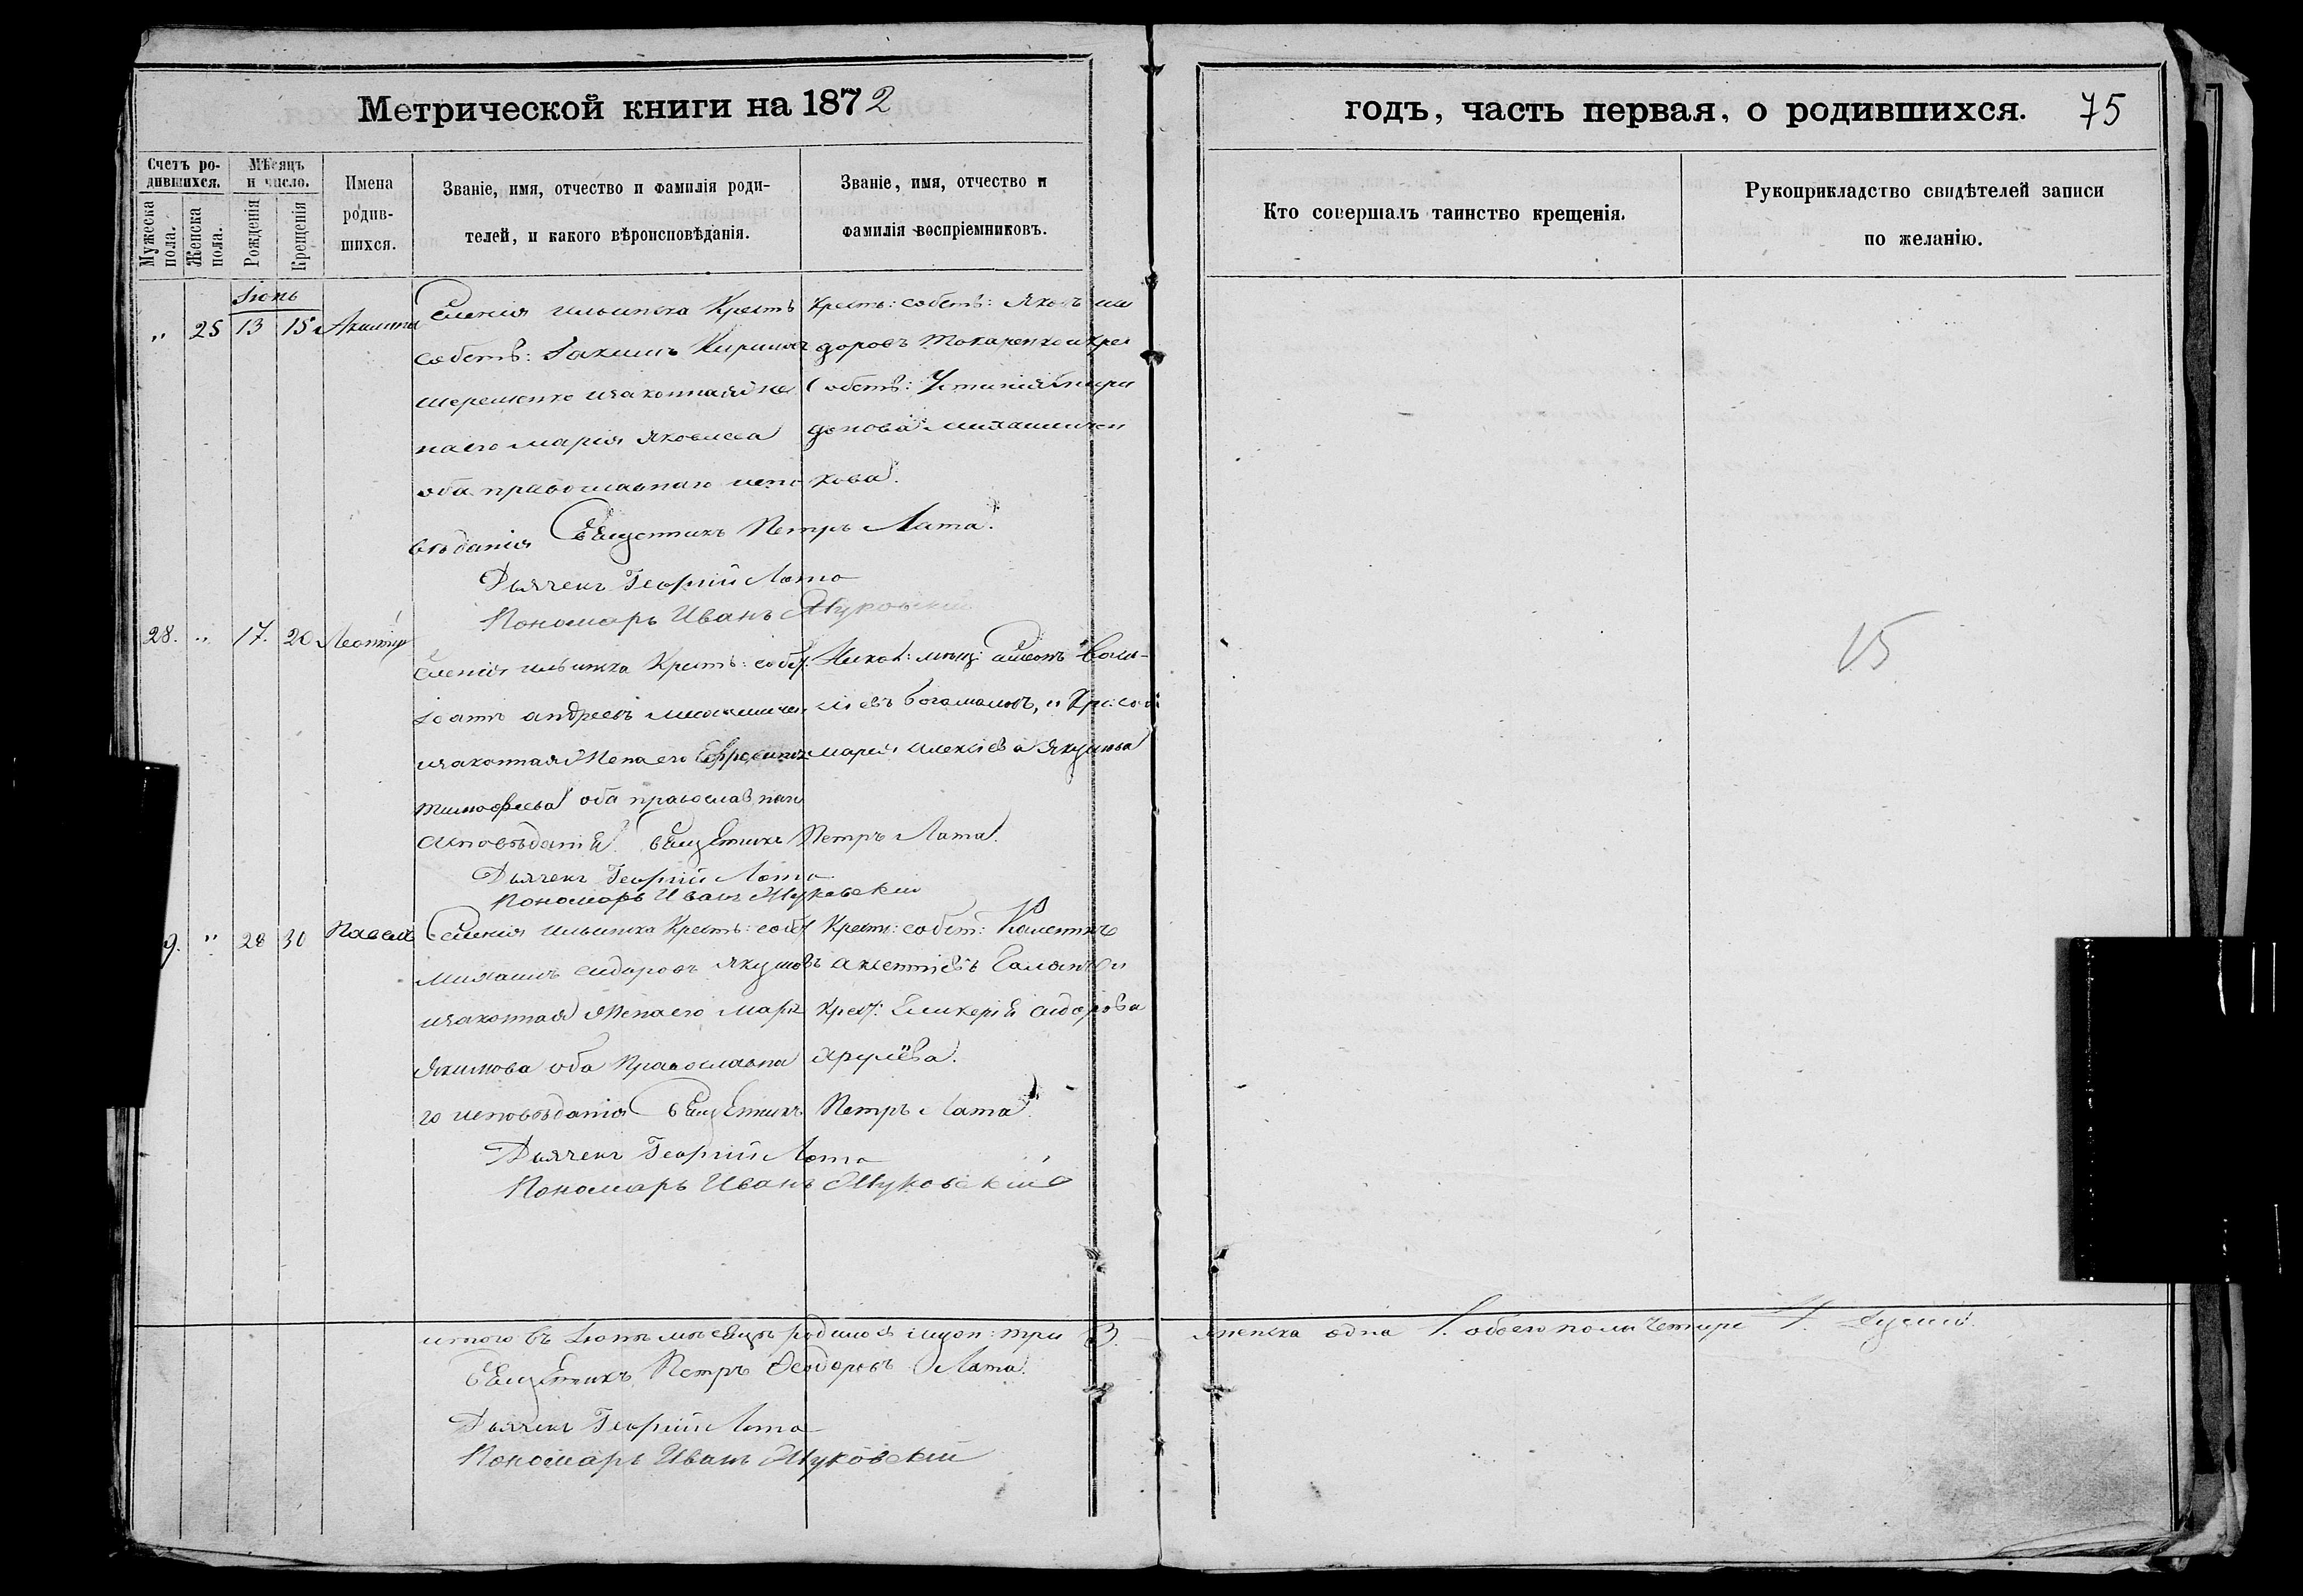 Метрической книги на 1872
годъ, часть первая, о родившихся. 75
Счетъ ро-
дившихся.
Мужеска пола.
Женска пола.
Мѣсяцъ
и число.
Рожденія
Крещенія
Имена
родив-
шихся.
Званіе, имя, отчество и фамилія роди-
телей, и какого вѣроисповѣданія.
Званіе, имя, отчество и
фамилія воспріемниковъ.
Кто совершалъ таинство крещенія.
Рукоприкладство свидѣтелей записи
по желанію.
Іюнь
" 25 13 15 Акилина
Селенія Ильинка Крест
собств: Іакимъ Кирилов
Шереметко изаконная Же
на его Марія Яковлева
оба православнаго испо
вѣданія
Крест: собств: Яковъ
доровъ Токаренко и Крес
Собств: Устинія Спири
донова
кова
Священникъ Петръ Лата.
Дьячекъ Георгій Лата
Пономарь Иванъ Жуковскій
28. " 17. 20 Леонтій
Селенія Ильинка Крест: собст:
Іоаннъ Андреевъ
изаконная Жена его Ефросинія
Тимофеева оба православнаго
исповѣданія
мѣщ: Васи-
ліевъ Богомоловъ, и Кр: соб:
Марія Алексіева Якушева
Священникъ Петръ Лата.
Дьячекъ Георгій Лата
Пономарь Иванъ Жуковскій
9. " 28 30 Павелъ
Селенія Ильинка Крест: собст
Михаилъ Сидоровъ Якушовъ
изаконная Жена его Марія
Якимова оба Православна
го исповѣданія
Крест: собст:
Крест: Гликерія Сидорова
Хрулёва.
Священникъ Петръ Лата.
Дьячекъ Георгій Лата
Пономарь Иванъ Жуковскій
15
итого въ Іюнѣ мѣсяцѣ родилося мущон: три 3. женска одна 1. обоего пола четире 4. душъ.
Священникъ Петръ Феодоровъ Лата.
Дьячекъ Георгій Лата
Пономарь Иванъ Жуковскій